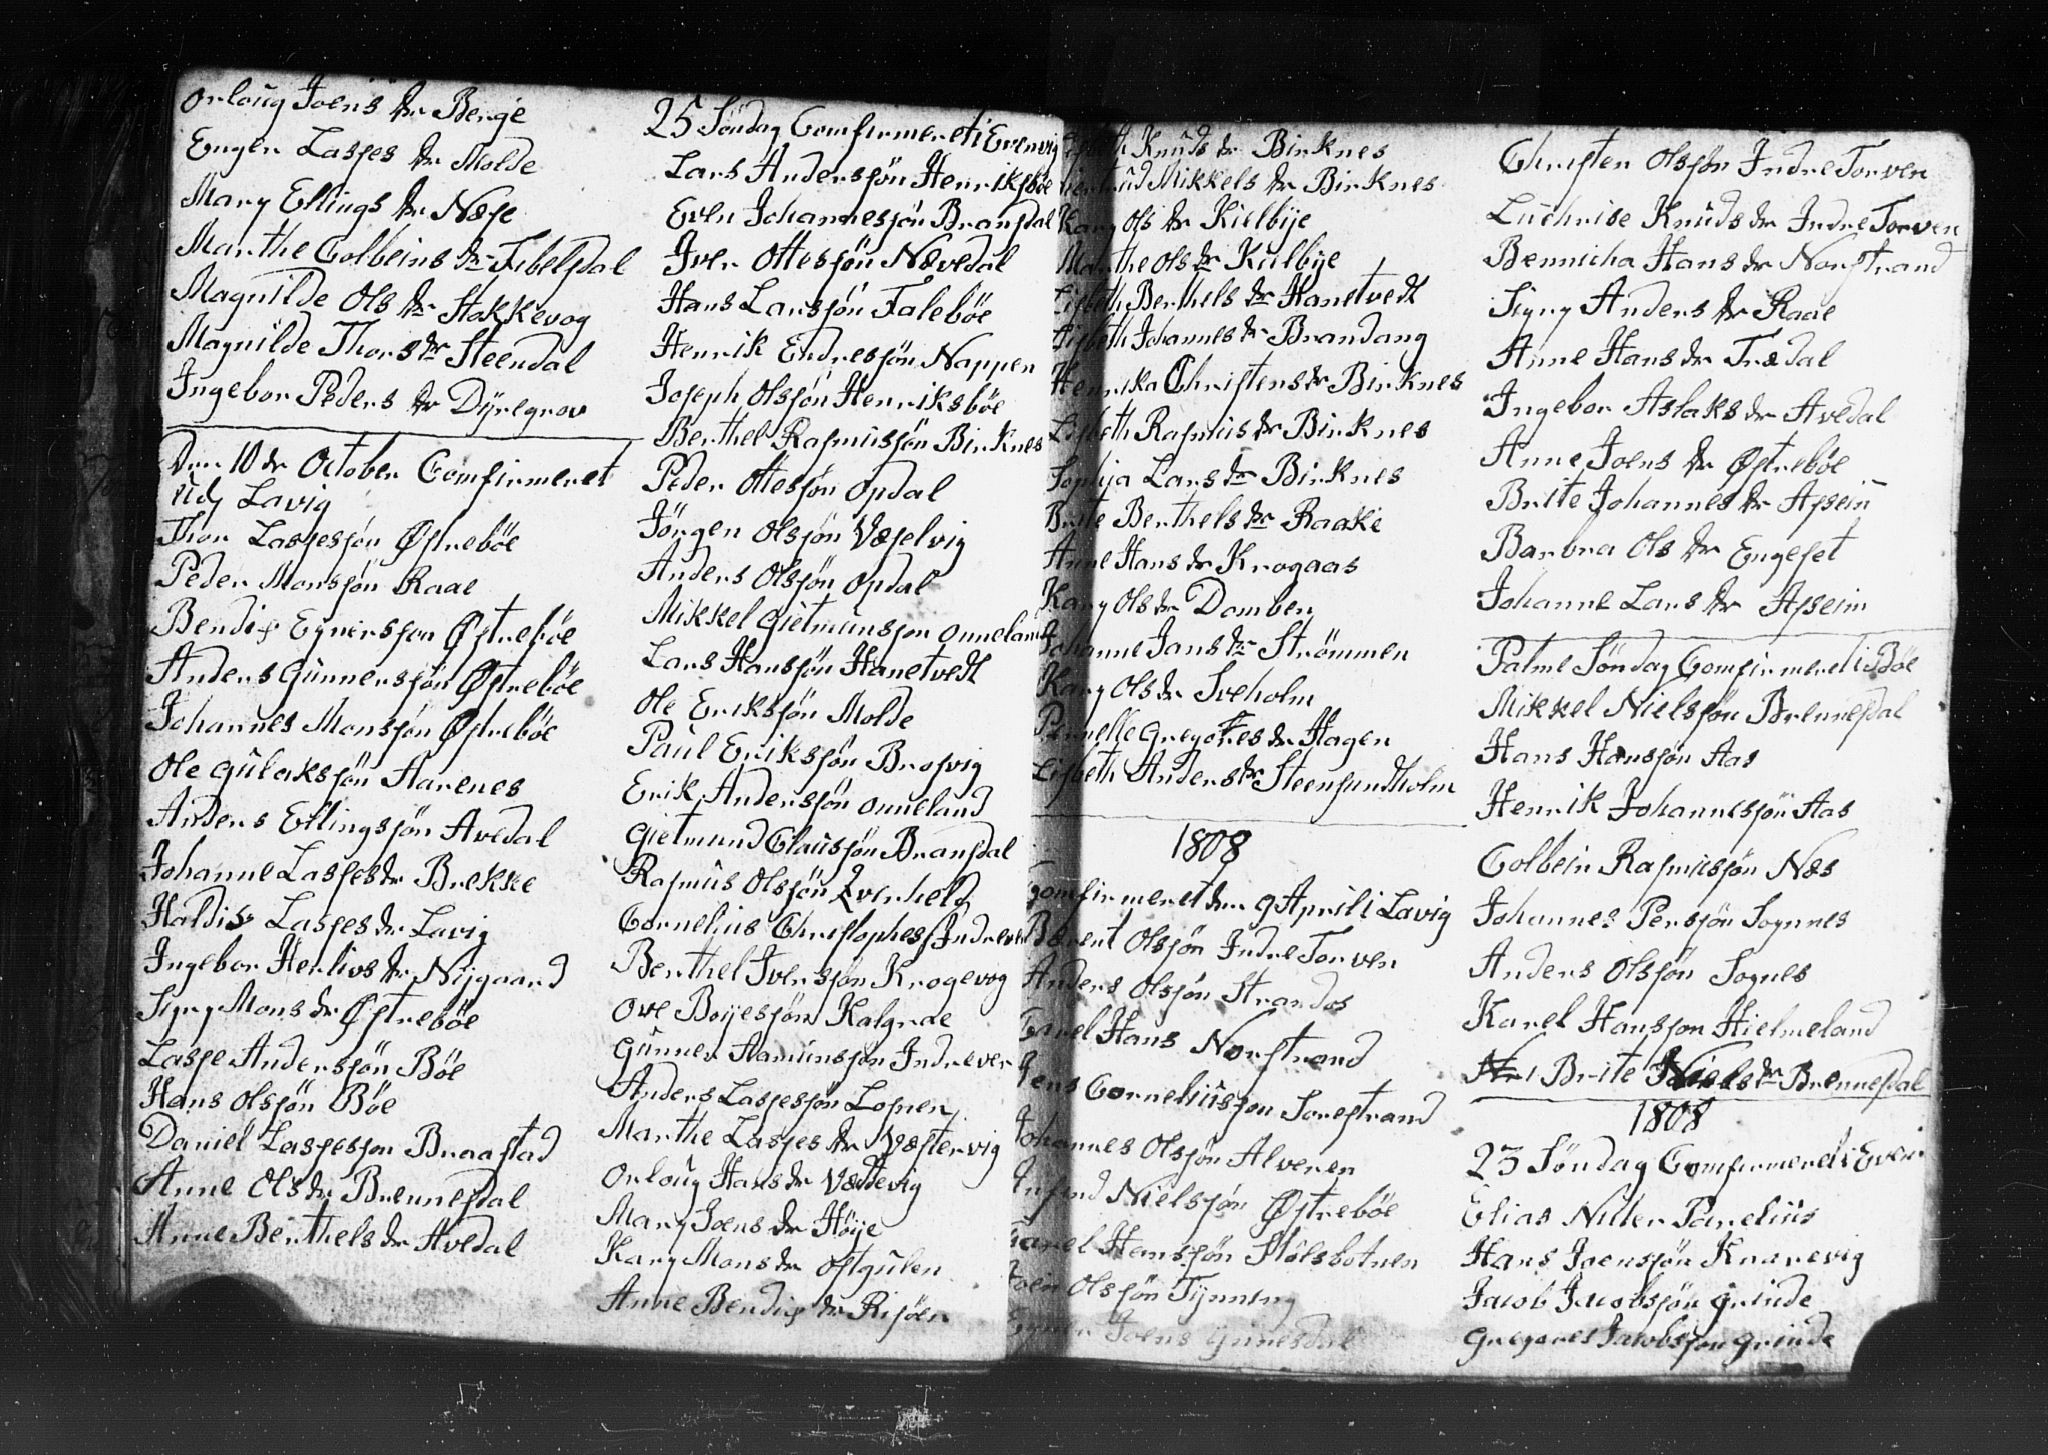 Orloug Joens dr Berge
Engen Lasses dr Molde
Mary Ellings dr Næse
Marthe Colbeins dr Tibelsdal
Magnilde Ols dr Hakkevog
Magnilde Thors dr Steendal
Ingebor Peders dr Dÿregrov
Den 10 dr October Comfirmeret
udj Lavig
Thor Lassesjön Østrebøe
Peder Monsjön Raae
Bendix Egnersjon Østrebøe
Anders Gunnersjön Østrebøe
Johannes Monsjön Østrebøe
Ole Gulaksjön Aarenes
Anders Ellingsjön Avedal
Johanne Lasses dr Brekke
Haldis Lasses dr Lavig
Ingebor Herlivs dr Nÿgaard
Signy Mons dr Østrebøe
Lasse Andersjön Böe
Hans Olsjön Böe
Daniel Lassesjon Braastad
Anne Ols dr Brennesdal
Anne Berthels dr Avedal
25 Söndag Comfirmeret i Evenvig
Lars Andersjön Henriksböe
Even Johannesjön Bransdal
Iver Ottesjön Nævedal
Hans Larsjön Taleböe
Henrik Endresjön Nappen
Joseph Olsjön Henriksböe
Berthel Rasmusjön Birknes
Peder Ottesjön Opdal
Jörgen Olsjön Væselvig
Anders Olsjön Opdal
Mikkel Gietmunsjon Onneland
Lars Hansjön Hanetvedt
Ole Eriksjön Molde
Paul Eriksjön Brosvig
Erik Andersjön Onneland
Gietmund Clausjön Bransdal
Rasmus Olsjön Qverheld
Cornelius Christophes Indrever
Berthel Iversjön Krogevog
Ove Boyesjön Kalgrae
Gunner Aamunsjon Indrever
Anders Lassesjon Losnen
Marthe Lasses dr Væstervig
Orloug Hans dr Vædtevig
Mary Joens dr Höije
Kary Mons dr Ostgulen
Anne Bendix dr Risöen
Knuds dr Birknes
Mikkels dr Birknes
Kary Ols dr Kielbÿe
Marthe Ols dr Kielbÿe
Lisbeth Berthels dr Hanetvedt
Lisbeth Johannes dr Brandang
Henrika Christens dr Birknes
Lisbeth Rasmus dr Birknes
Sophia Lars dr Birknes
Brite Berthels dr Raake
Anne Hans dr Krogaas
Kary Ols dr Domben
Johanne Jans dr Strömmen
Kary Ols dr Sveholm
Pernelle Gregories dr Hagen
Lisbeth Anders dr Steensundholm
1808
Comfirmeret den 9 April i Lavig
Bærent Olsjön Indre Torven
Anders Olsjön Strandos
Carel Hans Norstrand
Jens Corneliusjon Sorestrand
Johannes Olsjön Alveren
Nielsjön Østrebøe
Carel Hemsjön Stölsbotnen
Joen Olsjön Tÿnning
Joens
Christen Olsjön Indre Torven
Luchrise Knuds dr Indre Torven
Bennicha Hans dr Norstrand
Signy Anders dr Raae
Anne Hans dr Trædal
Ingebor Aslaks dr Avedal
Anne Joens dr Østrebøe
Brite Johannes dr Asseim
Barbra Ols dr Engeset
Johanne Lars dr Asseim
Palme Söndag Comfirmeret i Böe
Mikkel Nielsjön Brennesdal
Hans Hansjön Aas
Henrik Johannesjön Aas
Colbein Rasmusjön Næs
Johannes Persjön Sognnes
Anders Olsjön Sognes
Karel Hansjon Hielmeland
Brite Niels dr Brennesdal
1808
23 Söndag Comfirmeret i Even
Elias Niller Parelius
Hans Joensjön Knarevig
Jacob Jacobsjön Grinde
Gregores Jacobsjon Grinde